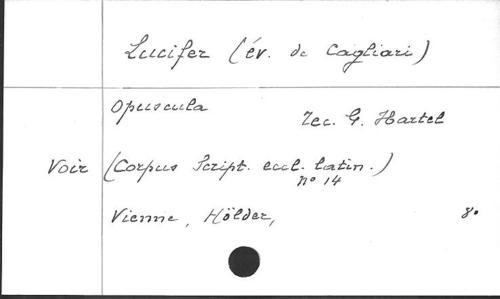 Lucifer (év. de Cagliari)
Opuscula rec. G. Hartel
Voir (Corpus Script. eccl. latin.)
nº 14
Vienne, Hölder, 8º